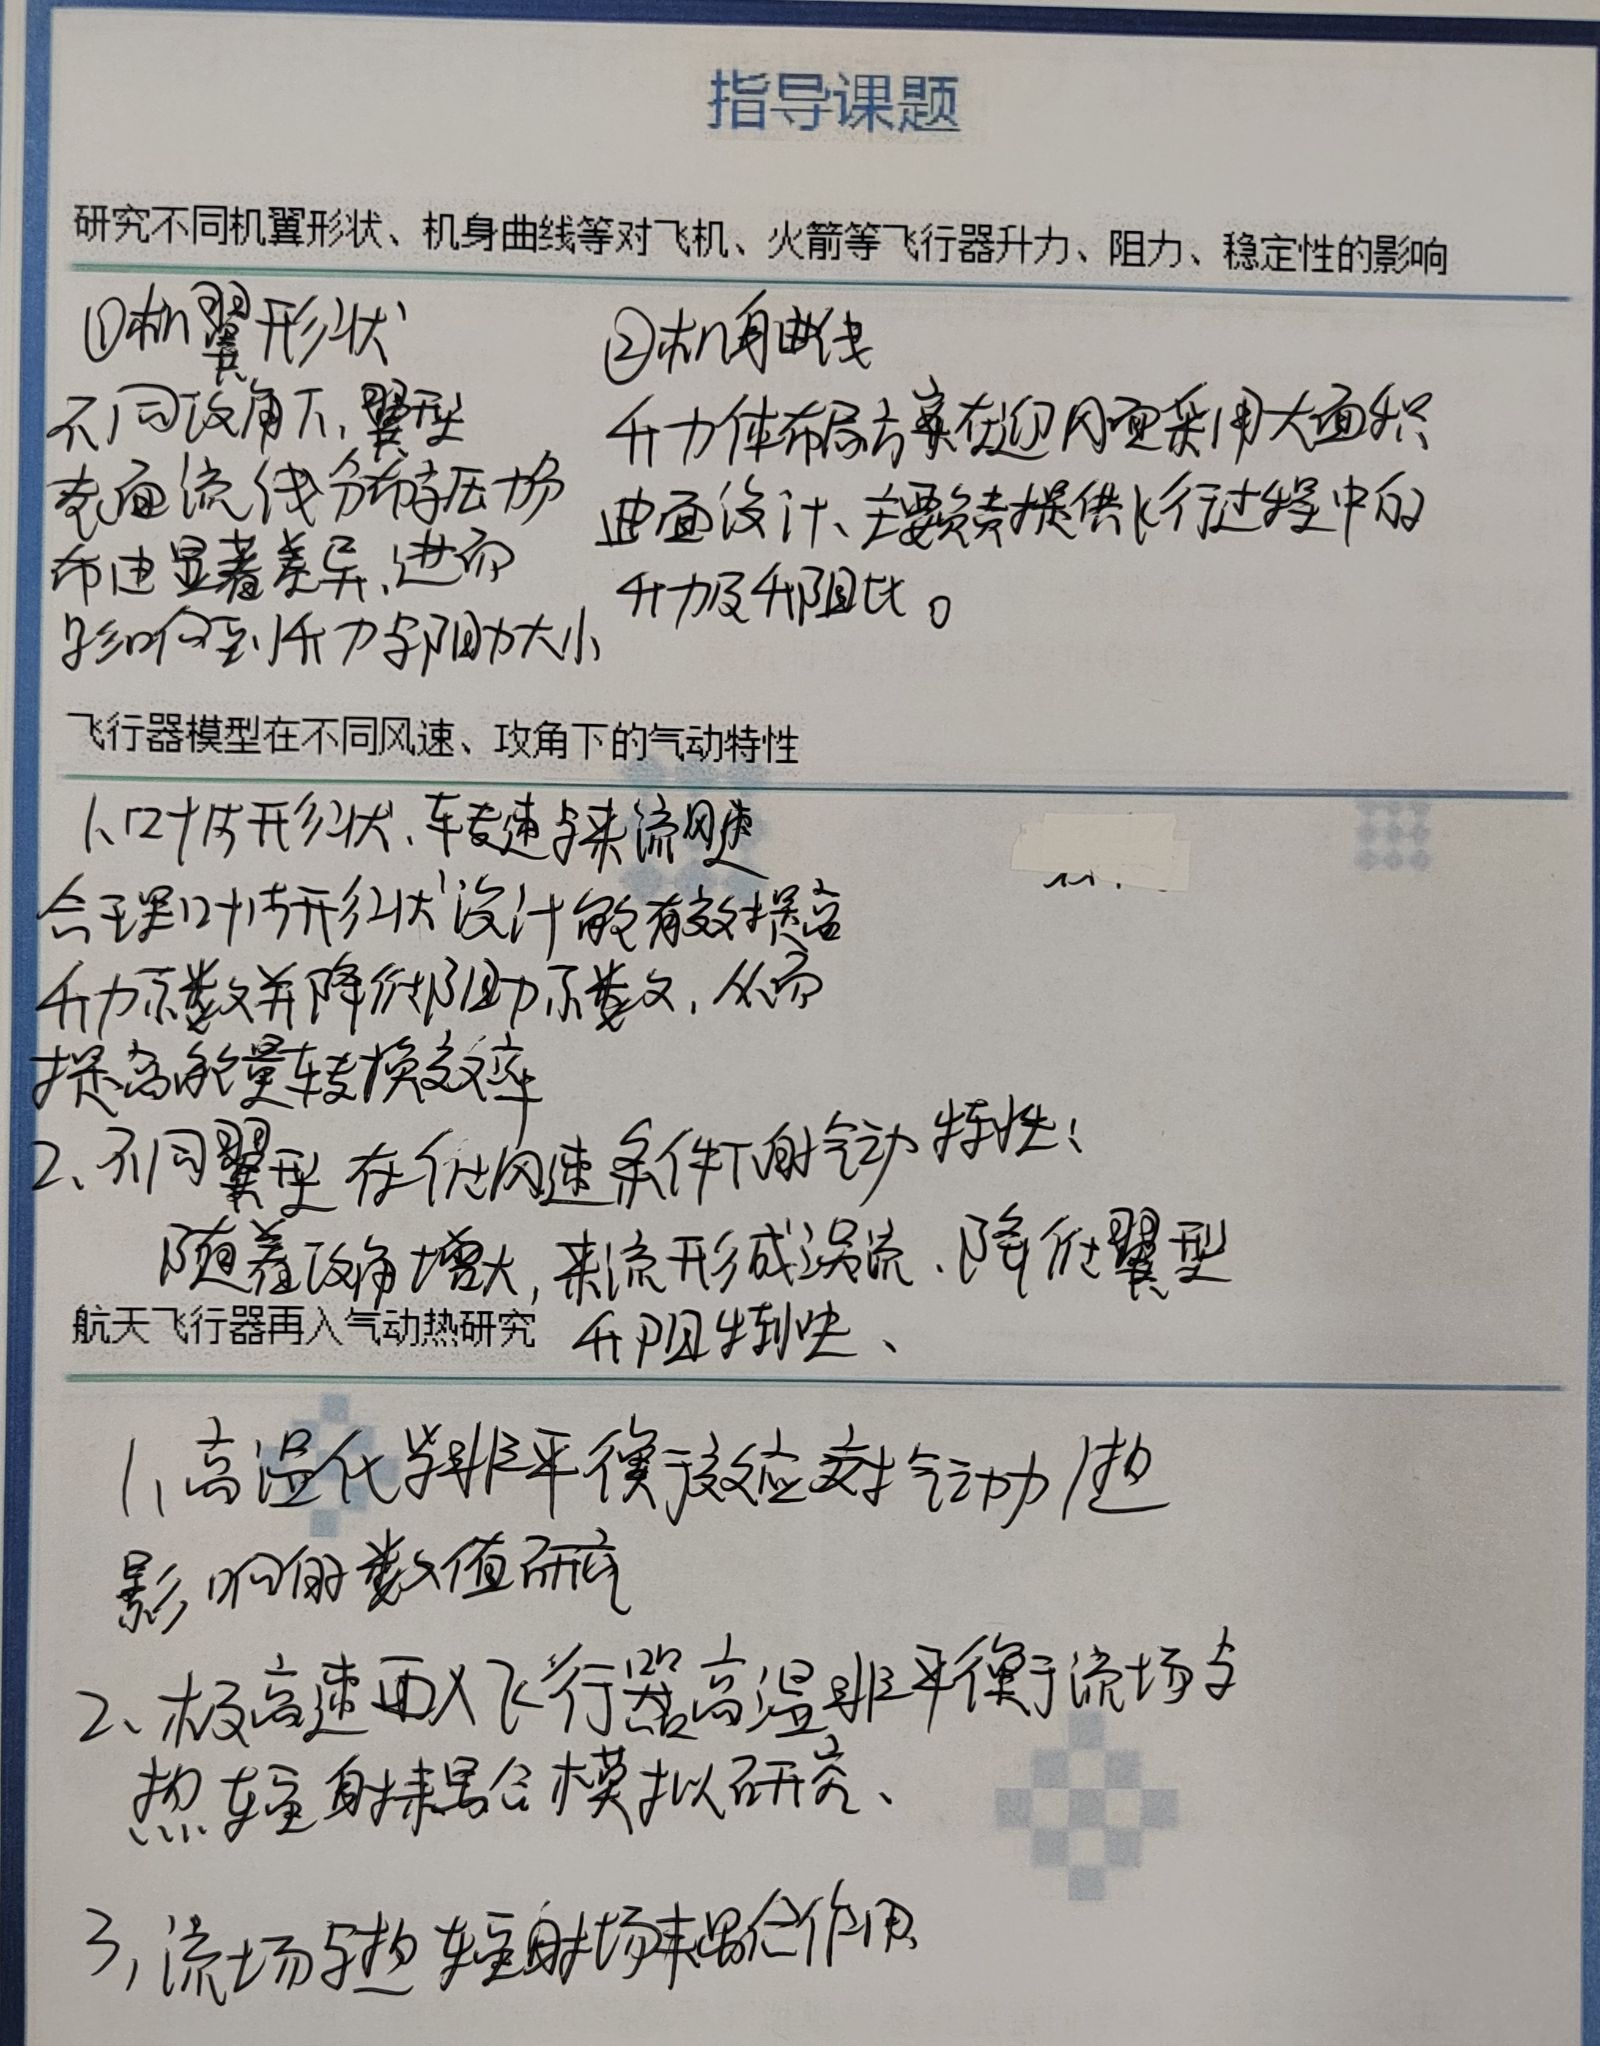 指导课题
研究不同机翼形状、机身曲线等对飞机、火箭等飞行器升力、阻力、稳定性的影响
①机翼形状
不同攻角下,翼型
表面流线分布存压场
布由显著差异,进而
影响到升力与阻力大小
②机身曲线
升力体布局方案在迎风面采用大面积
曲面设计、主要负责提供飞行过程中的
升力及升阻比。
飞行器模型在不同风速、攻角下的气动特性
1、叶片形状、转速与来流风速
合理叶片形状设计能有效提高
升力系数并降低阻力系数,从而
提高能量转换效率
2、不同翼型在低风速条件下的气动特性:
随着攻角增大,来流形成涡流、降低翼型
升阻特性、
航天飞行器再入气动热研究
1、高温化学非平衡效应对气动热
影响的数值研究
2、极高速再入飞行器高温非平衡流场与
热辐射耦合模拟研究、
3、流场与热辐射场耦合作用